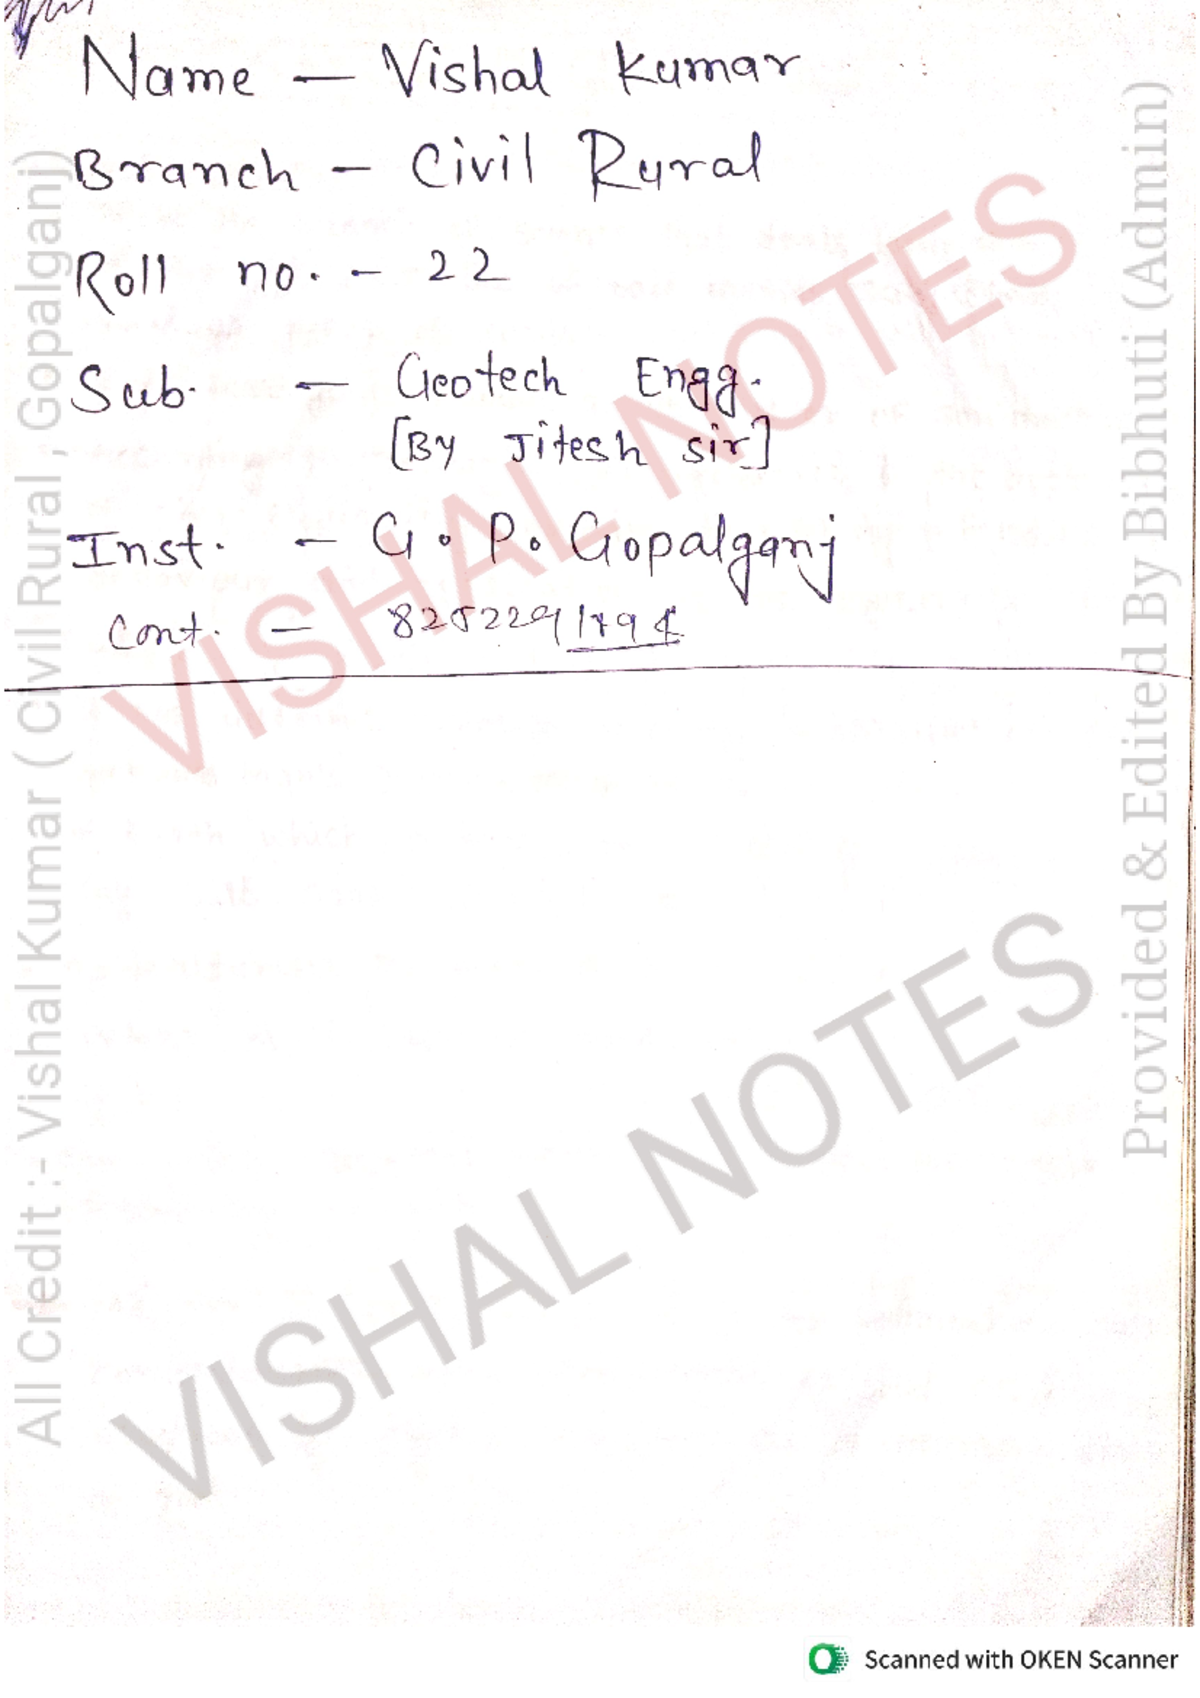 Name - Vishal Kumar
Branch - Civil Rural
Roll no. - 22
Sub. - Geotech Engg.
[By Jitesh sir]
Inst. - G. P. Gopalganj
Cont. -
VISHAL NOTES
VISHAL NOTES
All Credit :- Vishal Kumar ( Civil Rural , Gopalganj)
Provided & Edited By Bibhuti (Admin)
Scanned with OKEN Scanner